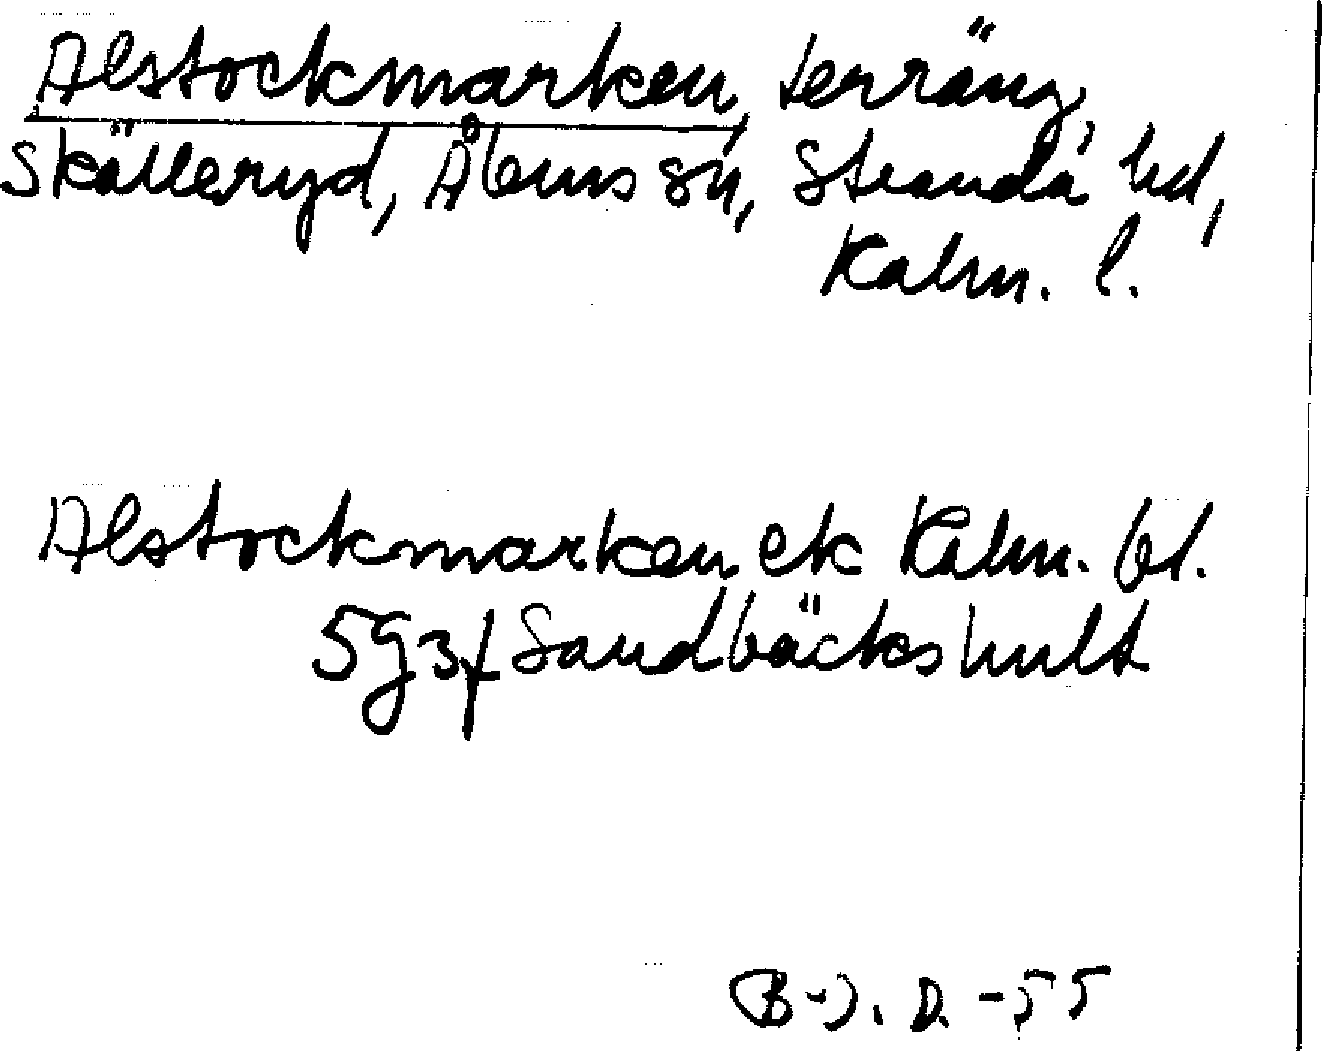 Alstockmarken, terräng,
Skälleryd, Ålems sn, Stranda hd,
Kalm. l.
Alstockmarken ek Kalm. bl.
5g3f Sandbäckshult
B-J. D. -55